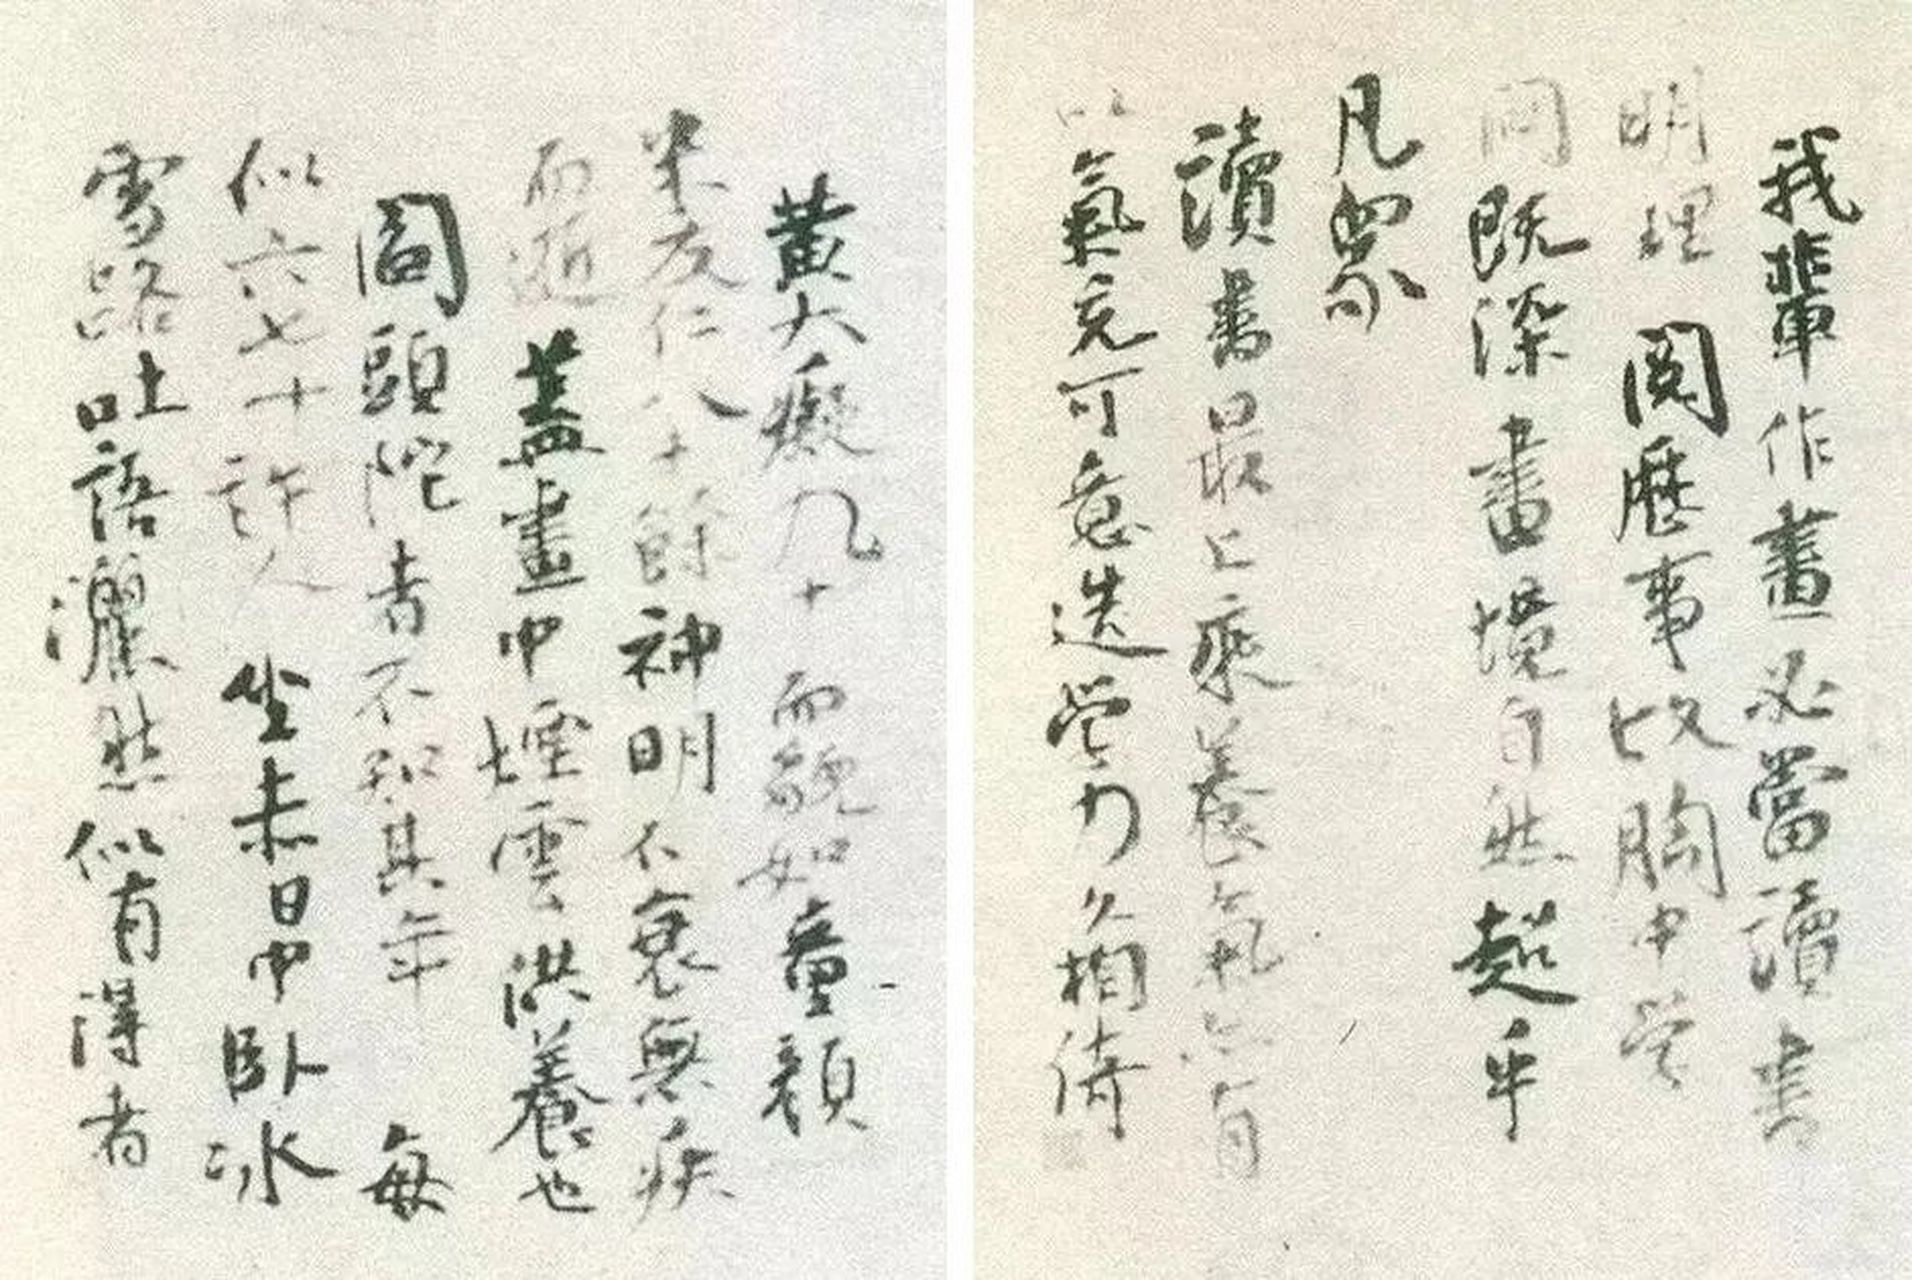 我輩作畫必當讀書
明理閱歷事故胸中學
問既深畫境自然超乎
凡眾
讀書最上乘養氣亦有
以氣充可意造學力久相倚
黃大癡九十而貌如童顏
米友仁八十餘神明不衰無疾
而逝蓋畫中煙雲供養也
閻頭陀者不知其年每
似六七十許人坐赤日中臥冰
雪路吐語灑然似有得者